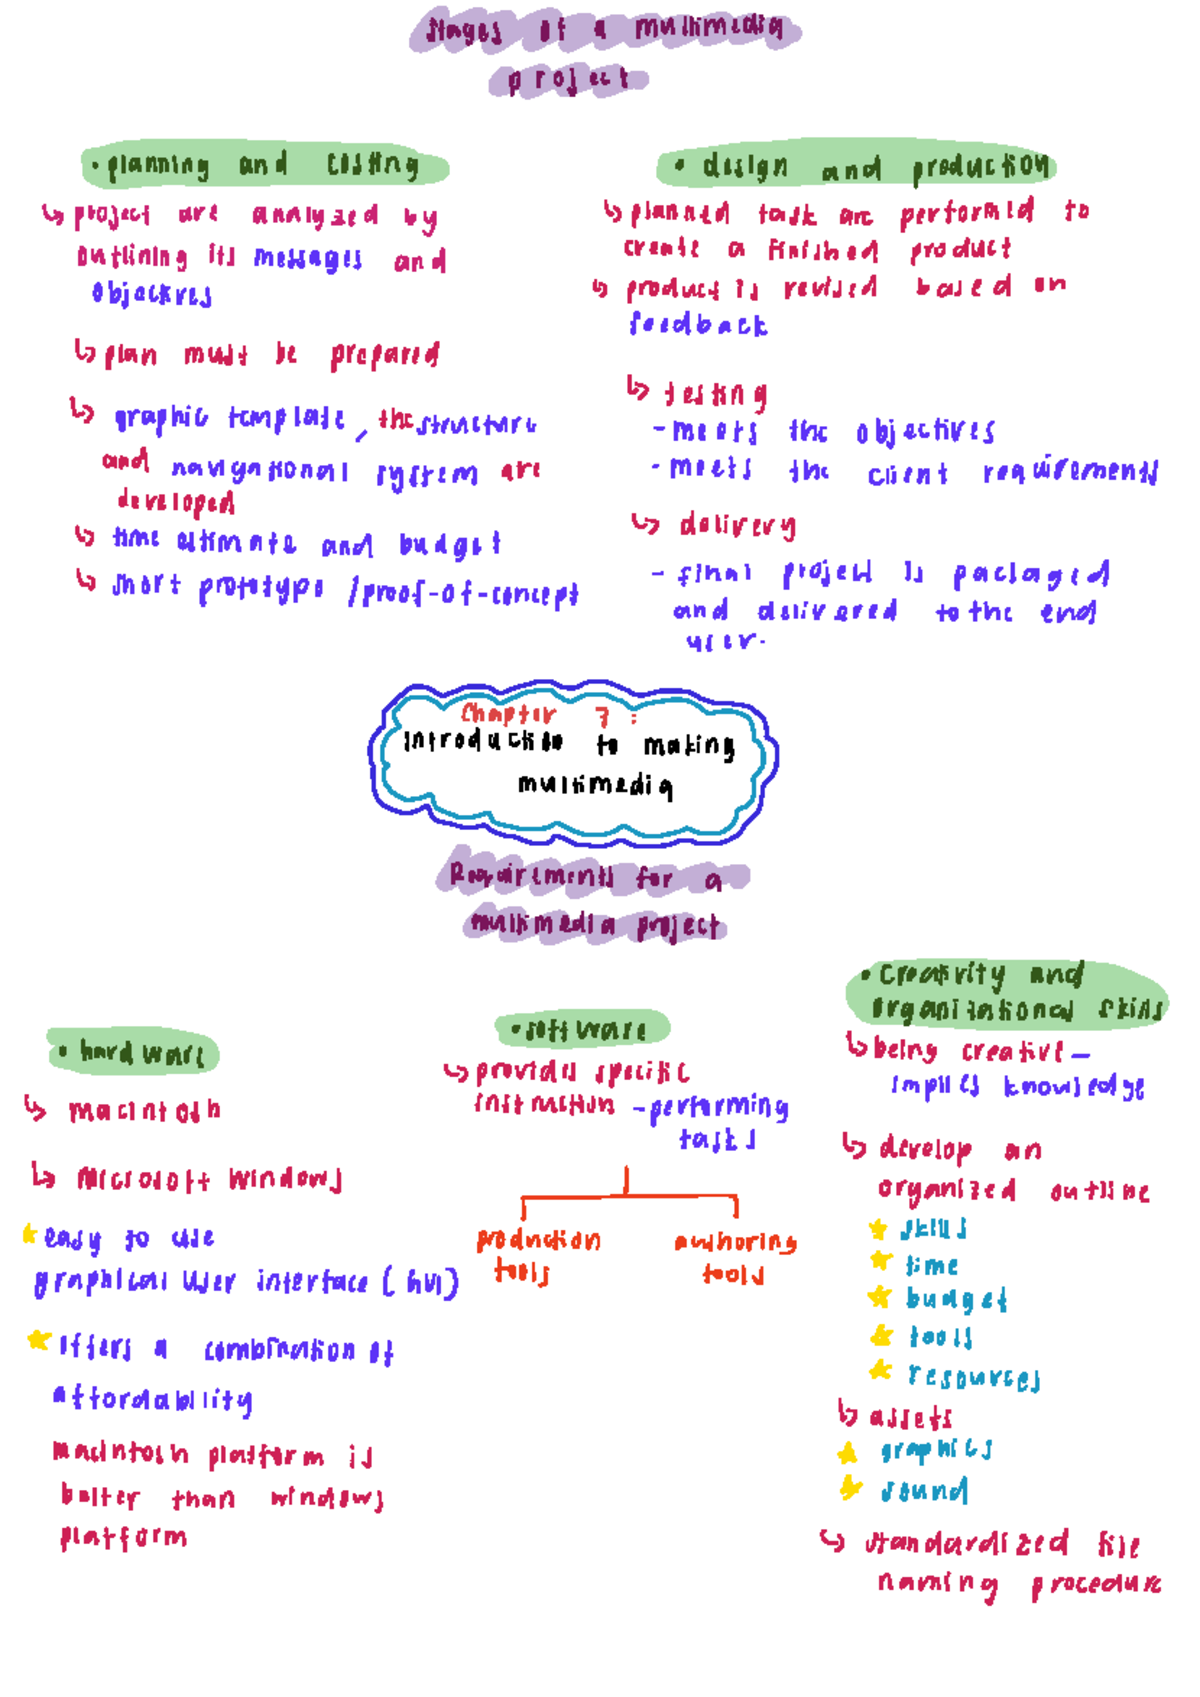 stages of a multimedia
project
• planning and costing
↳ project are analyzed by
outlining its messages and
objectives
↳ plan must be prepared
↳ graphic template, the structure
and navigational system are
developed
↳ time estimate and budget
↳ short prototype / proof-of-concept
• design and production
↳ planned task are performed to
create a finished product
↳ product is revised based on
feedback
↳ testing
- meets the objectives
- meets the client requirements
↳ delivery
- final project is packaged
and delivered to the end
user.
Chapter 7 :
Introduction to making
multimedia
Requirements for a
multimedia project
• hardware
↳ macintosh
↳ Microsoft Windows
★ easy to use
graphical user interface (GUI)
★ offers a combination of
affordability
macintosh platform is
better than windows
platform
• software
↳ provides specific
instruction - performing
tasks
production
tools
authoring
tools
• Creativity and
organizational skills
↳ being creative -
implies knowledge
↳ develop an
organized outline
★ skills
★ time
★ budget
★ tools
★ resources
↳ assets
★ graphics
★ sound
↳ standardized file
naming procedure